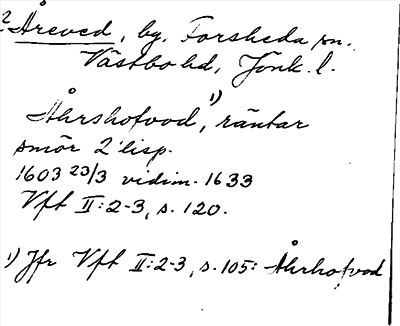 2 Åreved, by, Forsheda sn.
Västbo hd, Jönk. l.
Åhrshofvod 1), räntar
smör 2 lisp.
1603 23/3 vidim. 1633
Vft II:2-3, s. 120.
1) Jfr Vft II:2-3, s. 105: Åhrhofvod